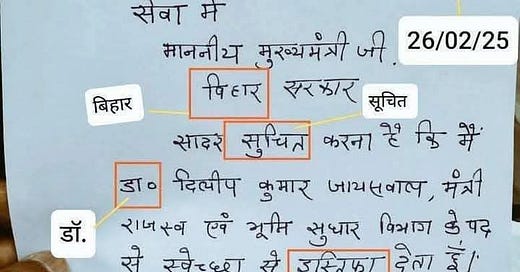 सेवा में
माननीय मुख्यमंत्री जी,
26/02/25
विहार सरकार
बिहार
सूचित
सादर सुचित करना है कि मैं
डा० दिलीप कुमार जायसवाल, मंत्री
डॉ.
राजस्व एवं भूमि सुधार विभाग के पद
से स्वेच्छा से इस्तिफा देता हूँ।